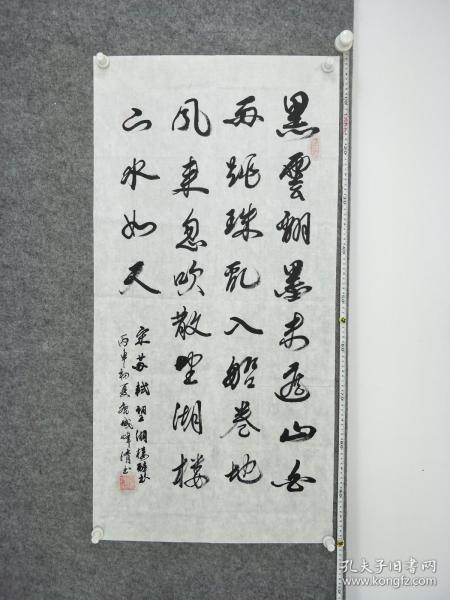 黑雲翻墨未遮山白
雨跳珠乱入船卷地
风来忽吹散望湖楼
下水如天
宋苏轼望湖楼醉书
丙申初夏
书
孔夫子旧书网
www.kongfz.com